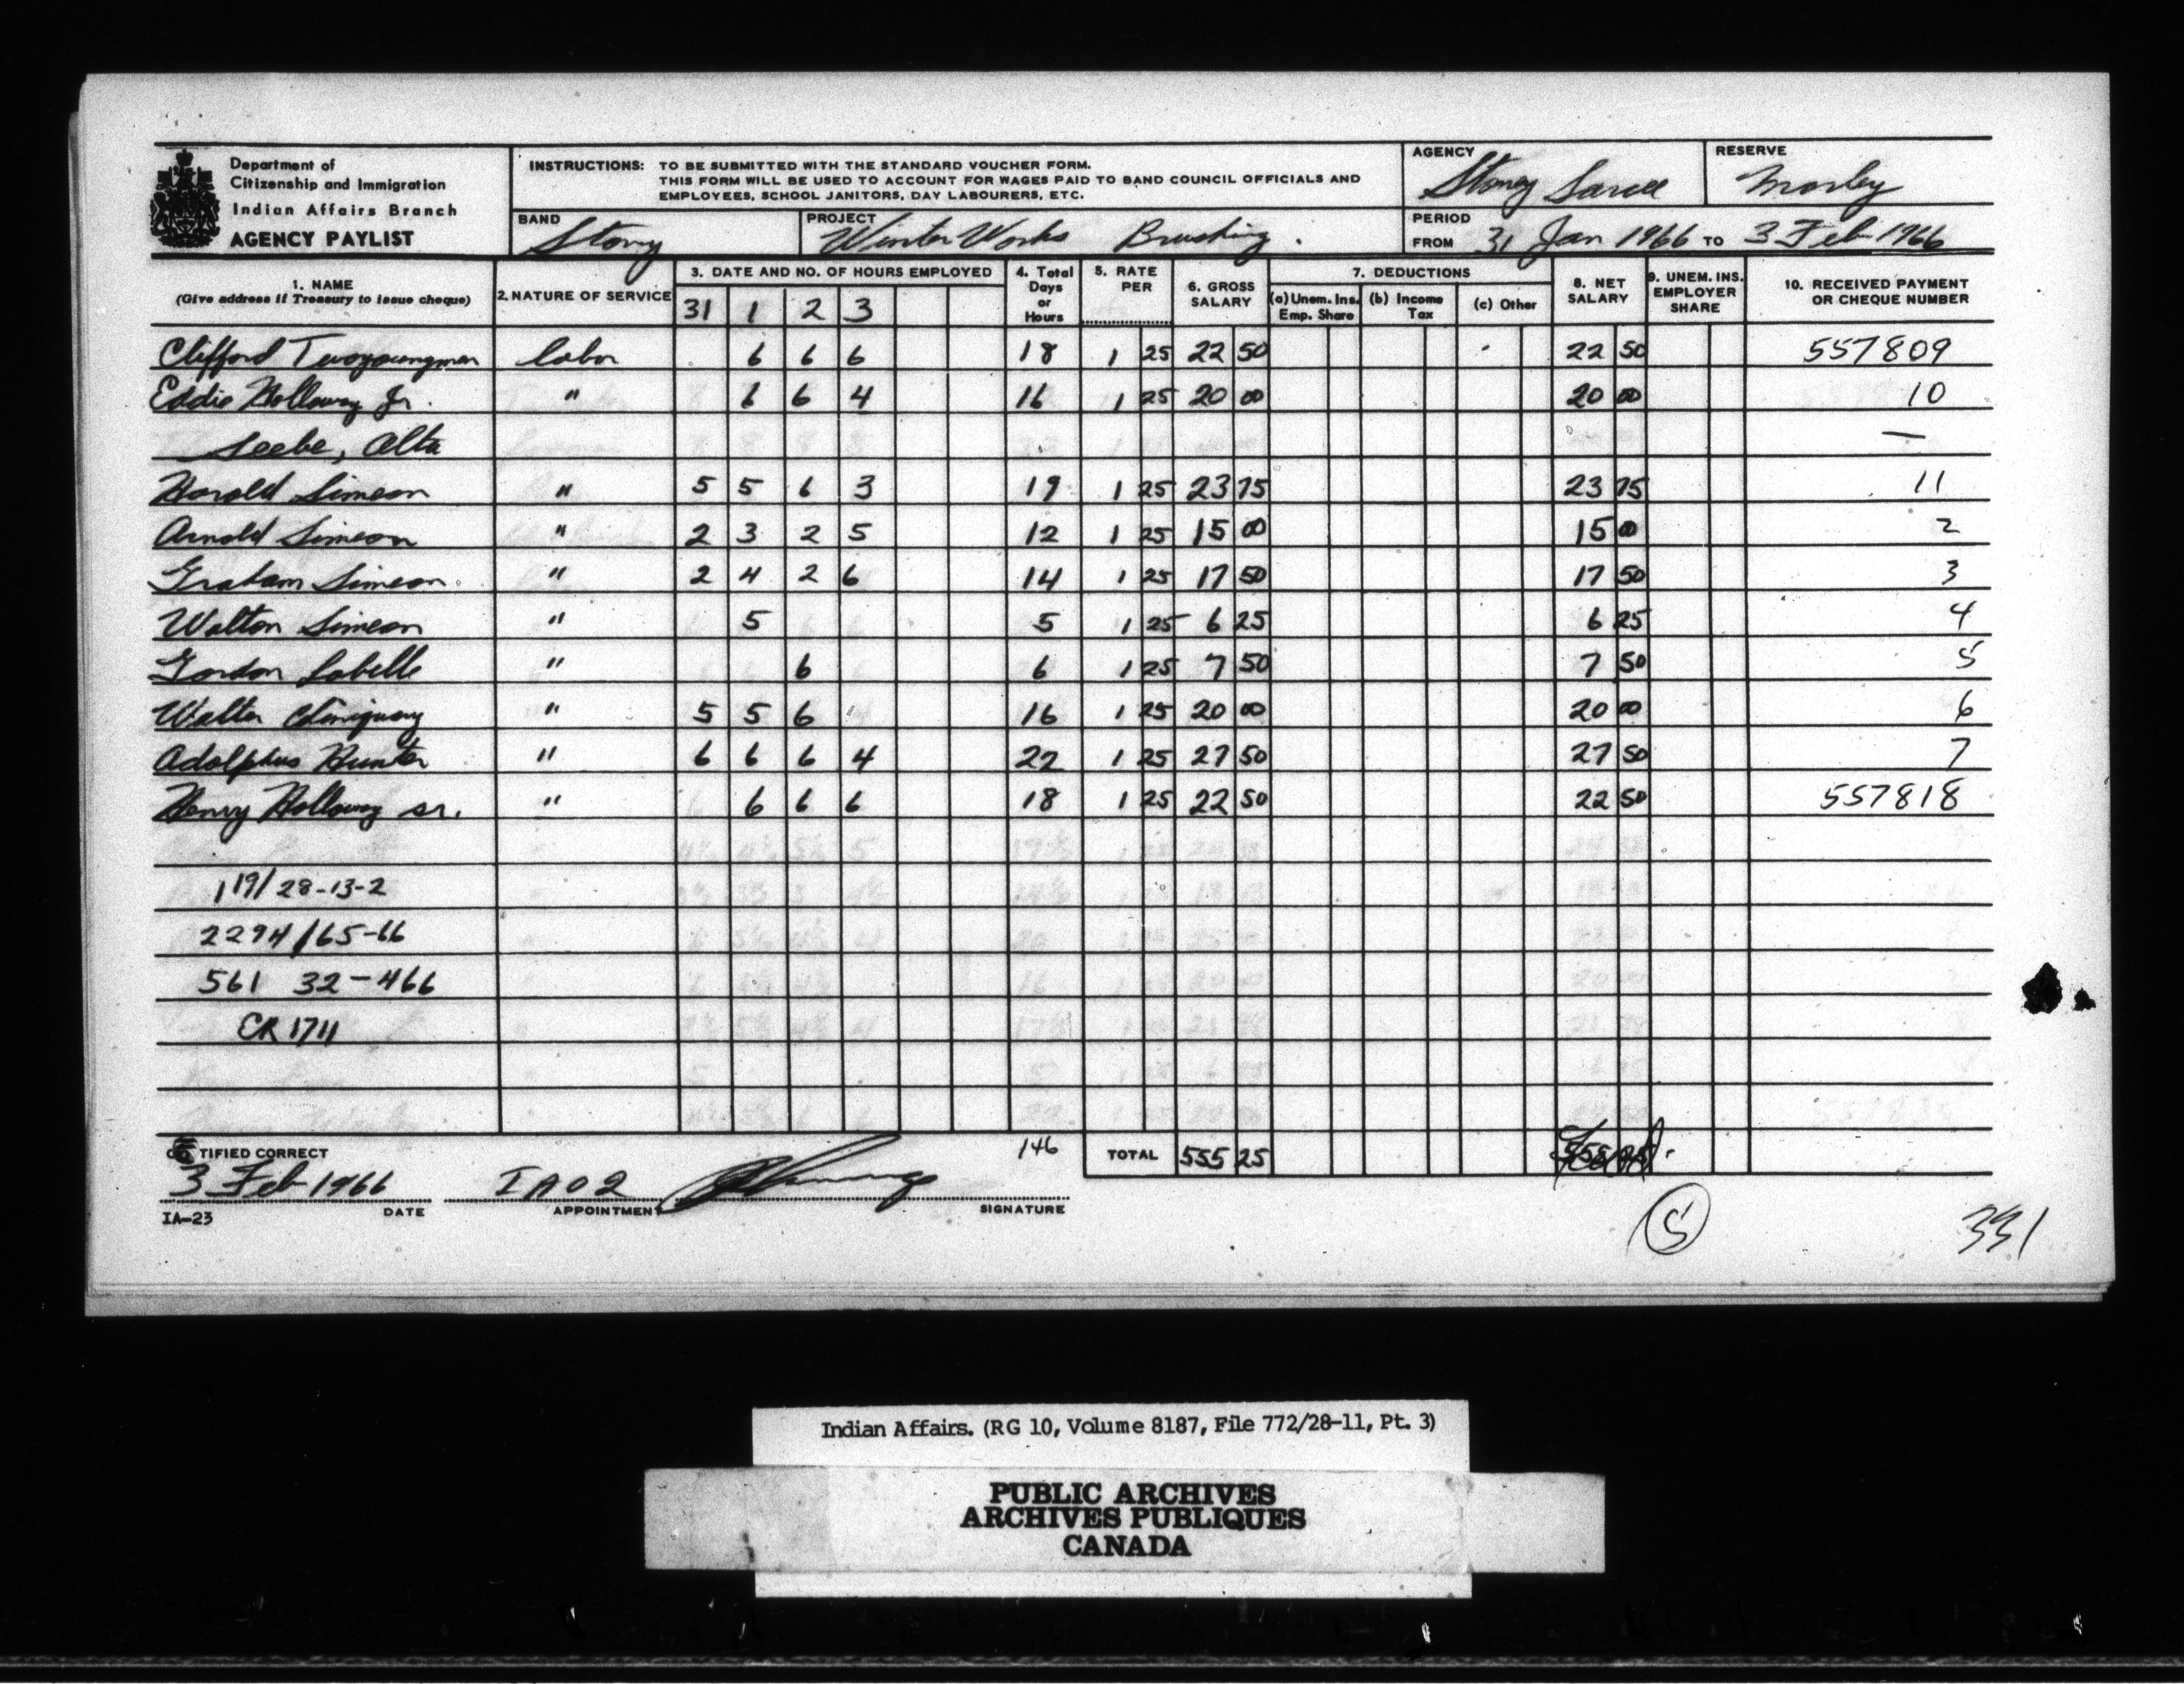 Department of
Citizenship and Immigration
Indian Affairs Branch
AGENCY PAYLIST
INSTRUCTIONS: TO BE SUBMITTED WITH THE STANDARD VOUCHER FORM.
THIS FORM WILL BE USED TO ACCOUNT FOR WAGES PAID TO BAND COUNCIL OFFICIALS AND
EMPLOYEES, SCHOOL JANITORS, DAY LABOURERS, ETC.
AGENCY Stoney Sarcee
RESERVE Morley
BAND Stony
PROJECT Winter Works Brushing.
PERIOD
FROM 31 Jan 1966 TO 3 Feb 1966
1. NAME
(Give address if Treasury to issue cheque)
2. NATURE OF SERVICE
3. DATE AND NO. OF HOURS EMPLOYED
31 1 2 3
4. Total Days or Hours
5. RATE PER
6. GROSS SALARY
7. DEDUCTIONS
(a) Unem. Ins. Emp. Share
(b) Income Tax
(c) Other
8. NET SALARY
9. UNEM. INS. EMPLOYER SHARE
10. RECEIVED PAYMENT OR CHEQUE NUMBER
Clifford Twoyoungmen labor 6 6 6 18 1 25 22 50 22 50 557809
Eddie Holloway Jr. " 6 6 4 16 1 25 20 00 20 00 10
Seebe, Alta —
Harold Simeon " 5 5 6 3 19 1 25 23 75 23 75 11
Arnold Simeon " 2 3 2 5 12 1 25 15 00 15 00 2
Graham Simeon " 2 4 2 6 14 1 25 17 50 17 50 3
Walton Simeon " 5 5 1 25 6 25 6 25 4
Gordon Labelle " 6 6 1 25 7 50 7 50 5
Walter Chiniquay " 5 5 6 16 1 25 20 00 20 00 6
Adolphus Hunter " 6 6 6 4 22 1 25 27 50 27 50 7
Henry Holloway sr. " 6 6 6 18 1 25 22 50 22 50 557818
119/28-13-2
2294/65-66
561 32-466
CR 1711
146
TIFIED CORRECT
TOTAL 555 25
3 Feb 1966 IAO2
DATE APPOINTMENT SIGNATURE
IA-23
5
331
Indian Affairs. (RG 10, Volume 8187, File 772/28-11, Pt. 3)
PUBLIC ARCHIVES
ARCHIVES PUBLIQUES
CANADA